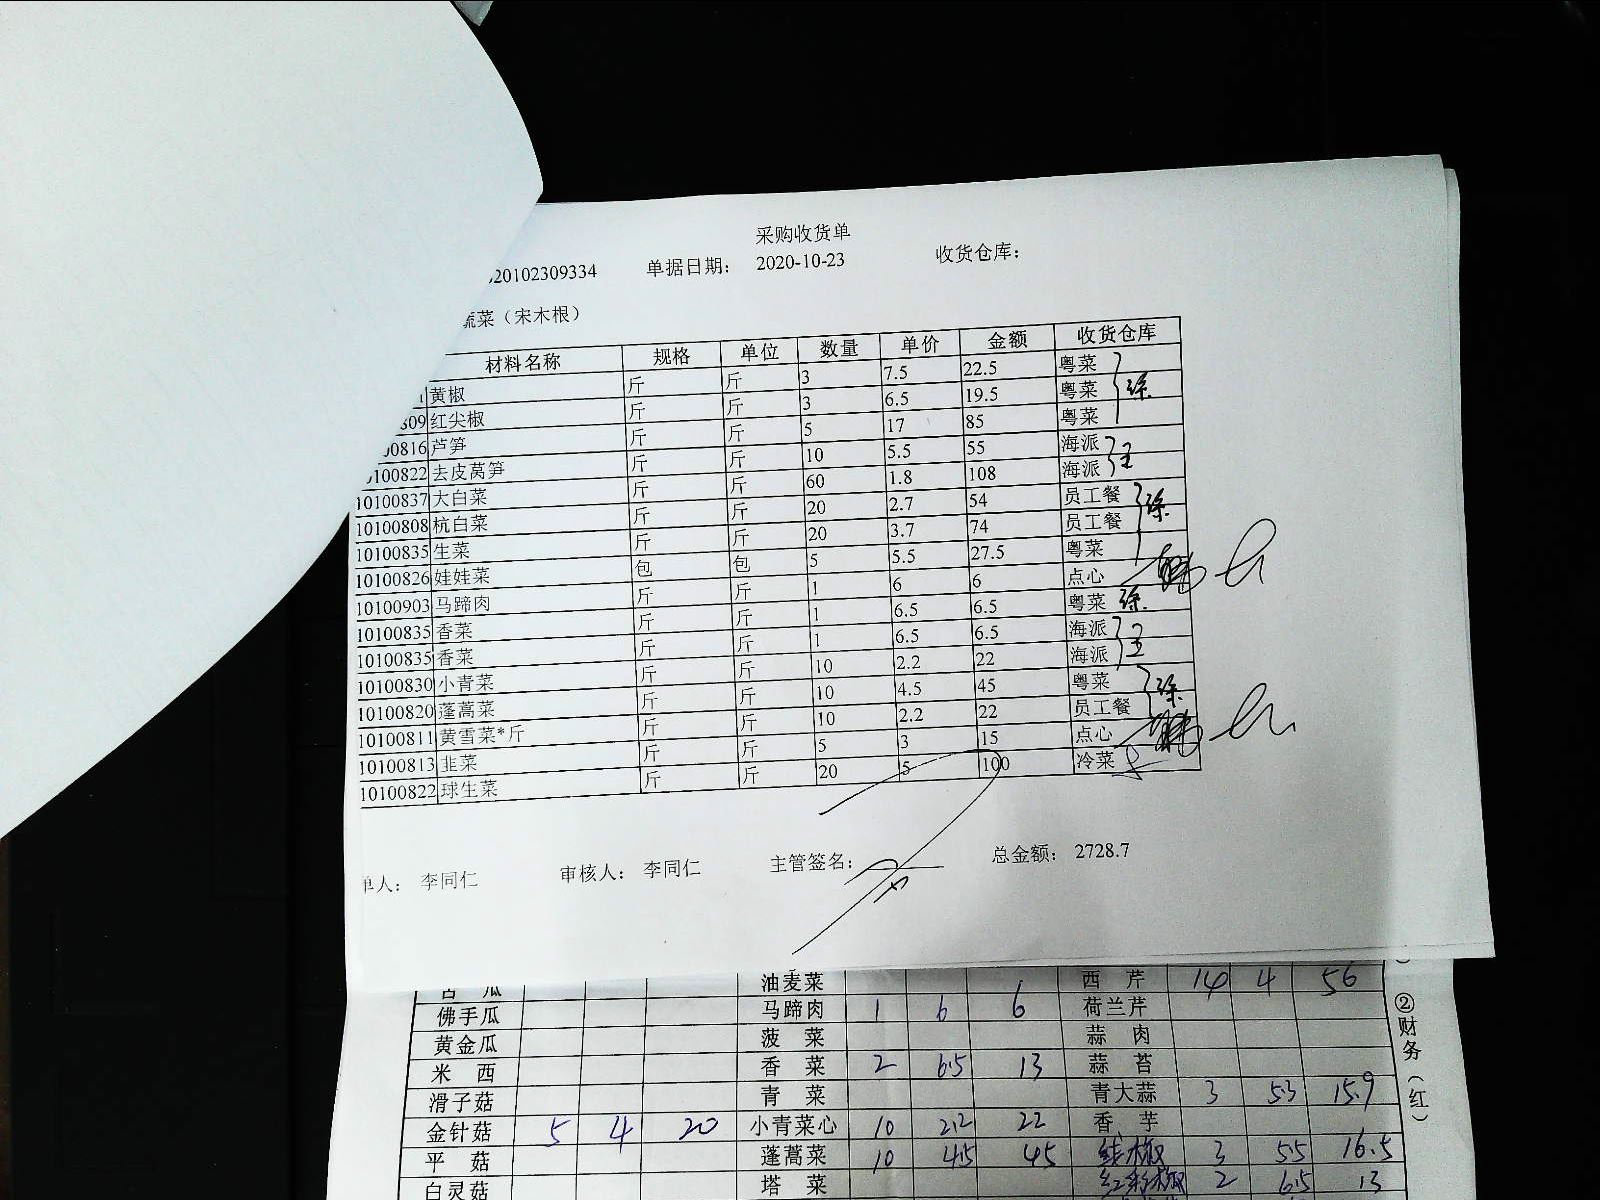 采购收货单
20102309334 单据日期： 2020-10-23 收货仓库：
蔬菜（宋木根）
材料名称 规格 单位 数量 单价 金额 收货仓库
黄椒 斤 斤 3 7.5 22.5 粤菜
809 红尖椒 斤 斤 3 6.5 19.5 粤菜 徐
00816 芦笋 斤 斤 5 17 85 粤菜
0100822 去皮莴笋 斤 斤 10 5.5 55 海派
10100837 大白菜 斤 斤 60 1.8 108 海派 王
10100808 杭白菜 斤 斤 20 2.7 54 员工餐
10100835 生菜 斤 斤 20 3.7 74 员工餐 徐
10100826 娃娃菜 包 包 5 5.5 27.5 粤菜
10100903 马蹄肉 斤 斤 1 6 6 点心
10100835 香菜 斤 斤 1 6.5 6.5 粤菜 徐
10100835 香菜 斤 斤 1 6.5 6.5 海派
10100830 小青菜 斤 斤 10 2.2 22 海派 王
10100820 蓬蒿菜 斤 斤 10 4.5 45 粤菜
10100811 黄雪菜*斤 斤 斤 10 2.2 22 员工餐 徐
10100813 韭菜 斤 斤 5 3 15 点心
10100822 球生菜 斤 斤 20 5 100 冷菜
单人： 李同仁 审核人： 李同仁 主管签名： 总金额： 2728.7
苦瓜 油麦菜 西芹 14 4 56
佛手瓜 马蹄肉 1 6 6 荷兰芹
黄金瓜 菠菜 蒜肉
米西 香菜 2 6.5 13 蒜苔
滑子菇 青菜 青大蒜 3 5.3 15.9
金针菇 5 4 20 小青菜心 10 2.2 22 香芋
平菇 蓬蒿菜 10 4.5 45 线椒 3 5.5 16.5
白灵菇 塔菜 红彩椒 2 6.5 13
②财务（红）